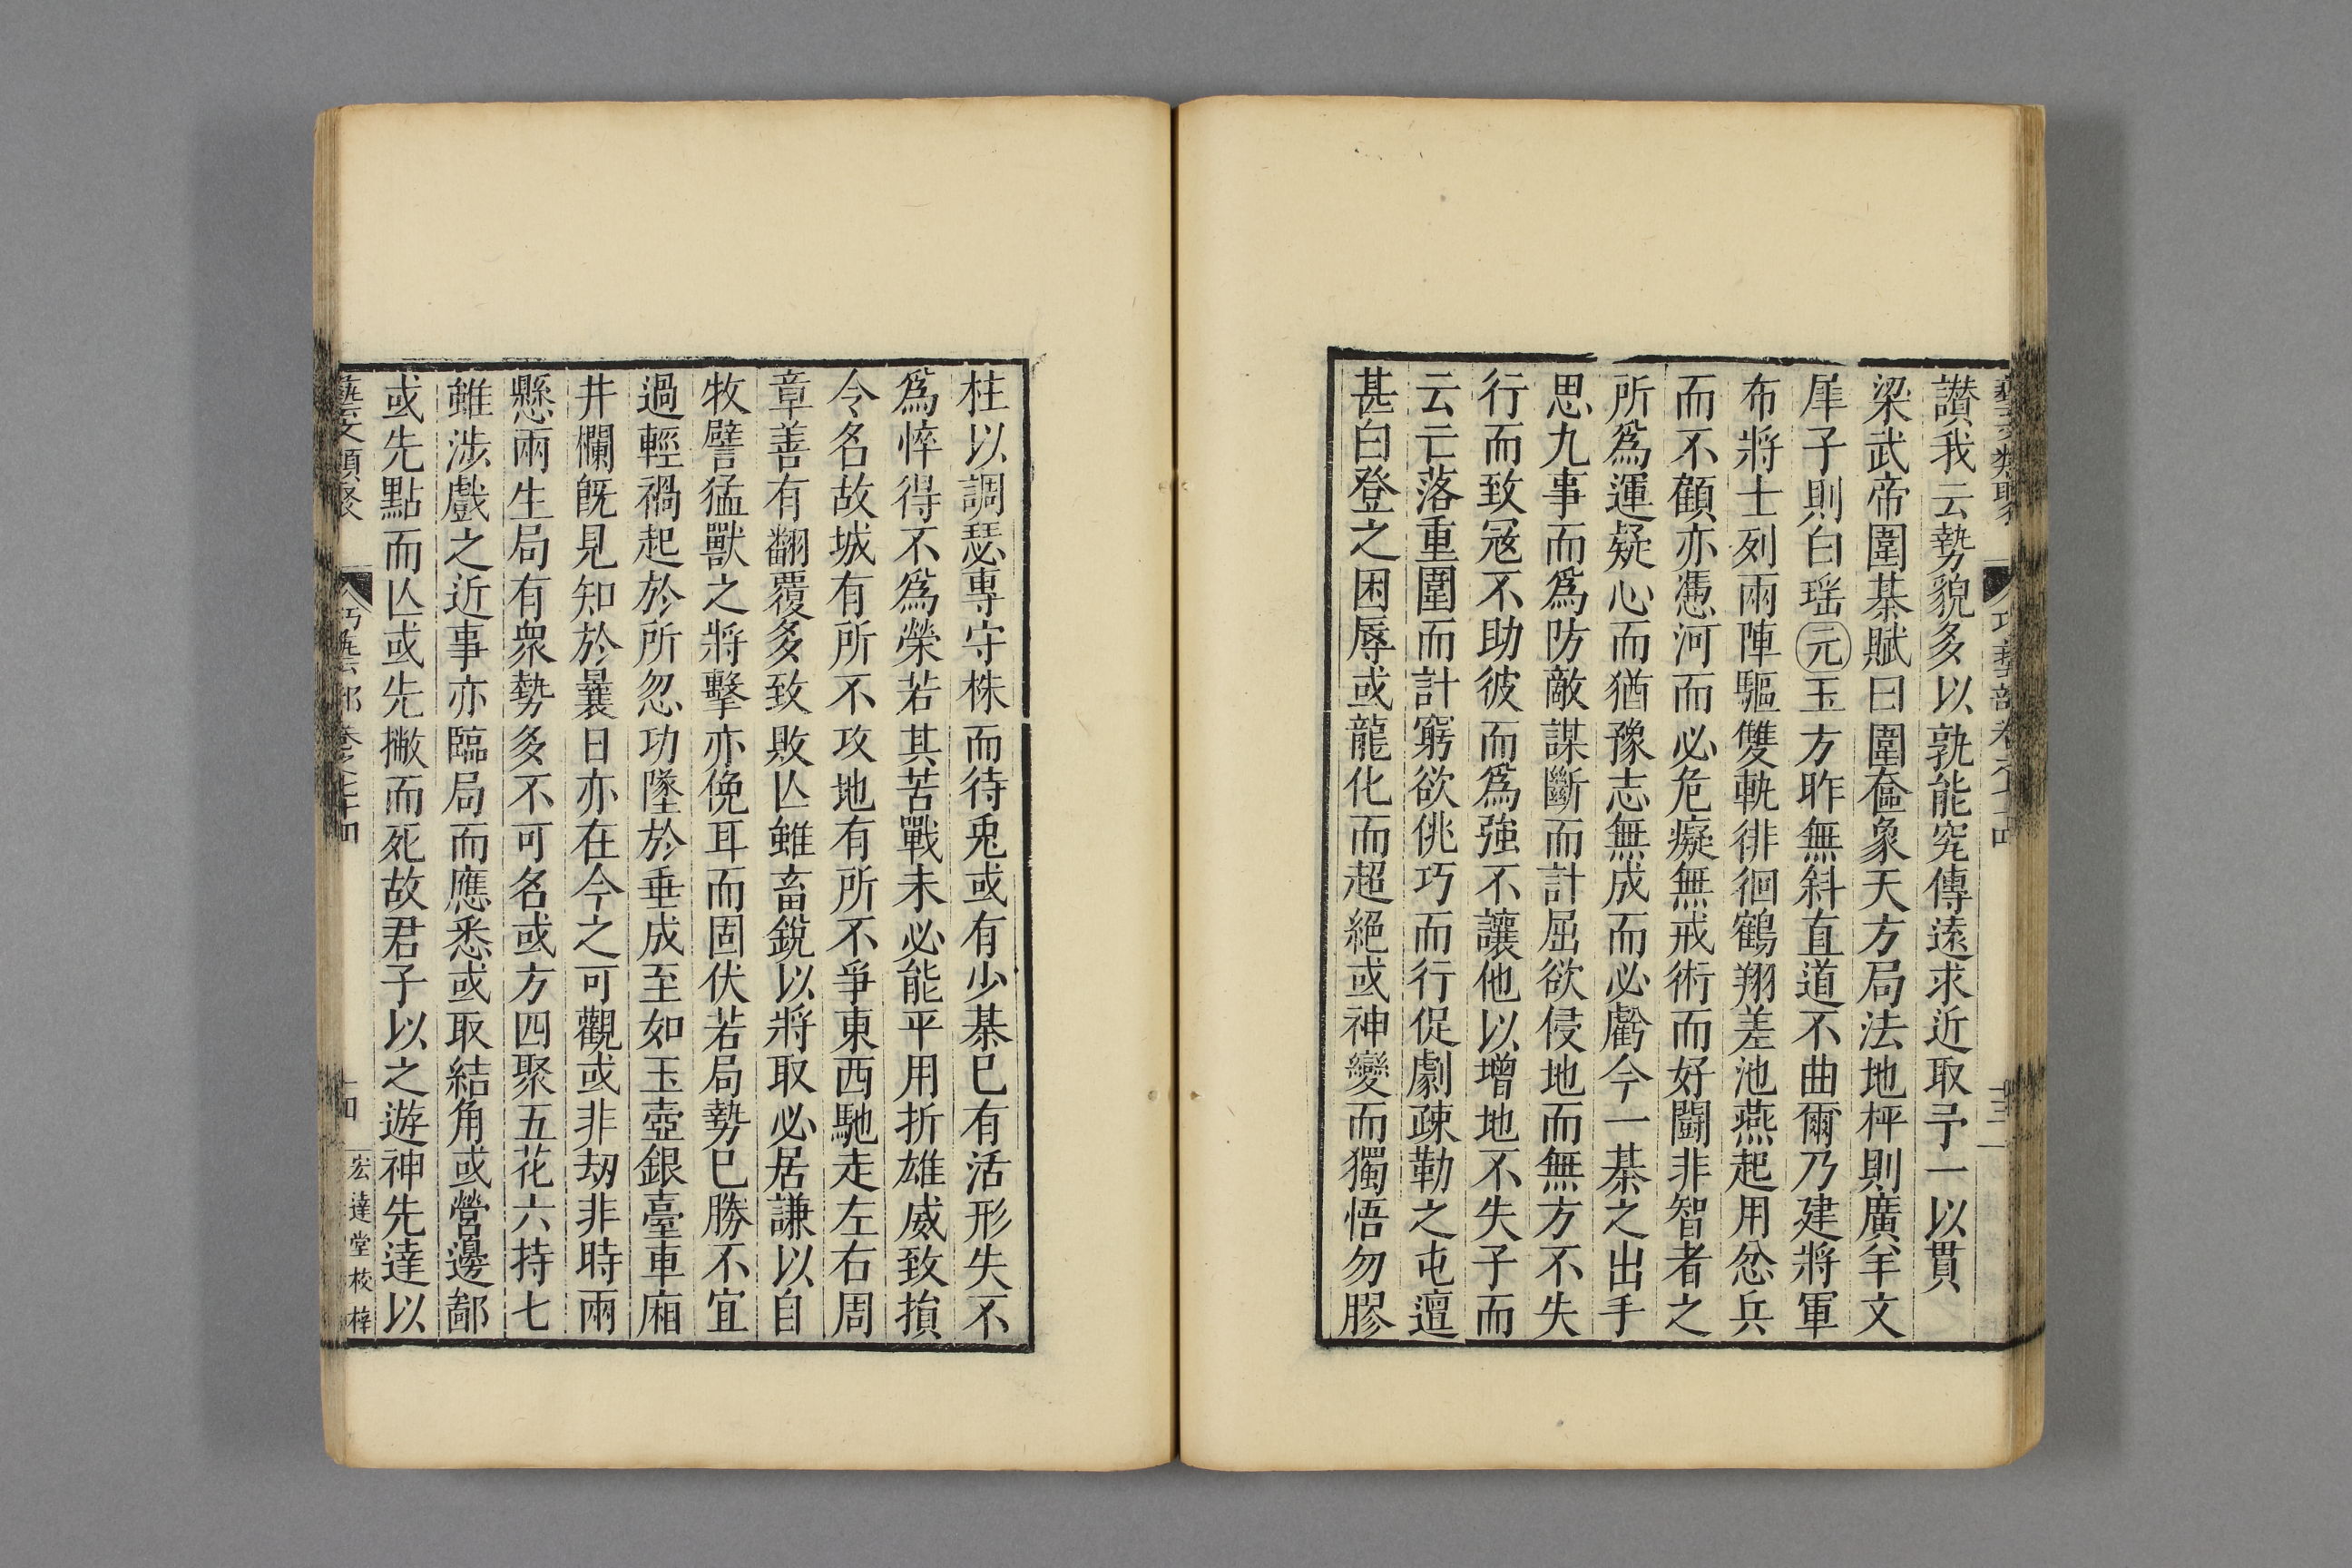 讃我云勢貌多以孰能究傳遠求近取予一以貫
梁武帝圍棊賦曰圍奩象天方局法地枰則廣羊文
犀子則白瑤元玉方昨無斜直道不曲爾乃建將軍
布將士列兩陣驅雙軌徘徊鶴翔差池燕起用忿兵
而不顧亦憑河而必危癡無戒術而好鬭非智者之
所爲運疑心而猶豫志無成而必虧今一棊之出手
思九事而爲防敵謀斷而計屈欲侵地而無方不失
行而致寇不助彼而爲強不讓他以增地不失子而
云亡落重圍而計窮欲佻巧而行促劇疎勒之屯邅
甚白登之困辱或龍化而超絕或神變而獨悟勿膠
柱以調瑟專守株而待兎或有少棊已有活形失不
爲悴得不爲榮若其苦戰未必能平用折雄威致損
令名故城有所不攻地有所不爭東西馳走左右周
章善有翻覆多致敗亾雖畜銳以將取必居謙以自
牧譬猛獸之將擊亦俛耳而固伏若局勢已勝不宜
過輕禍起於所忽功墜於垂成至如玉壺銀臺車廂
井欄旣見知於曩日亦在今之可觀或非劫非時兩
懸兩生局有衆勢多不可名或方四聚五花六持七
雖涉戲之近事亦臨局而應悉或取結角或營邊鄙
或先點而亾或先撇而死故君子以之遊神先達以
藝文類聚 巧藝部卷之七十四 十四 宏達堂校梓